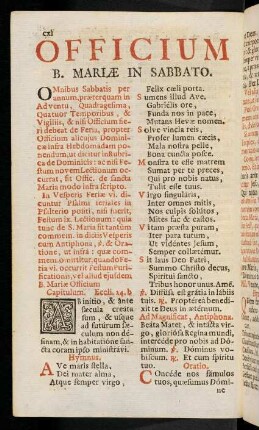 cxl
OFFICIUM
B. MARIÆ IN SABBATO.
OMnibus Sabbatis per
annum, præterquam in
Adventu, Quadragesima,
Quatuor Temporibus, &
Vigiliis, & nisi Officium fie-
ri debeat de Feria, propter
Officium alicujus Domini-
cæ infra Hebdomadam po-
nendum, ut dicitur in Rubri-
ca de Dominicis: ac nisi Fe-
stum novem Lectionum oc-
currat, fit Offic. de sancta
Maria modo infra scripto.
In Vesperis Feriæ vi. di-
cuntur Psalmi feriales in
Psalterio positi, nisi fuerit
Festum ix. Lectionum: quia
tunc de S. Maria fit tantùm
commem. in dictis Vesperis
cum Antiphona, ℣. & Ora-
tione, ut infra: quæ com-
mem. omittitur, quando Fe-
ria vi. occurrit Festum Puri-
ficationis, vel aliud ejusdem
B. Mariæ Officium
Capitulum. Eccli. 24. b
AB initio, & ante
sæcula creata
sum, & usque
ad futurum sæ-
culum non dé-
sinam, & in habitatione san-
cta coram ipso ministravi.
Hymnus.
AVe maris stella,
Dei mater alma,
Atque semper virgo,
Felix cœli porta.
Sumens illud Ave,
Gabriélis ore,
Funda nos in pace,
Mutans Hevæ nomen.
Solve vincla reis,
Profer lumen cæcis,
Mala nostra pelle,
Bona cuncta posce.
Monstra te esse matrem
Sumat per te preces,
Qui pro nobis natus,
Tulit esse tuus.
Virgo singularis,
Inter omnes mitis,
Nos culpis solútos
Mites fac & castos.
Vitam præsta puram,
Iter para tutum,
Ut vidéntes Jesum,
Semper collætémur.
Sit laus Deo Patri,
Summo Christo decus,
Spiritui sancto,
Tribus honor unus. Amē.
℣. Diffúsa est grátia in lábiis
tuis. ℟. Proptérea benedi-
xit te Deus in ætérnum.
Ad Magnificat, Antiphona.
Beáta Mater, & intácta vir-
go, gloriósa Regina mundi,
intercéde pro nobis ad Dó-
minum. ℣. Dóminus vo-
bíscum. ℟. Et cum spíritu
tuo. Oratio.
COncéde nos fámulos
tuos, quæsumus Dómi-
ne